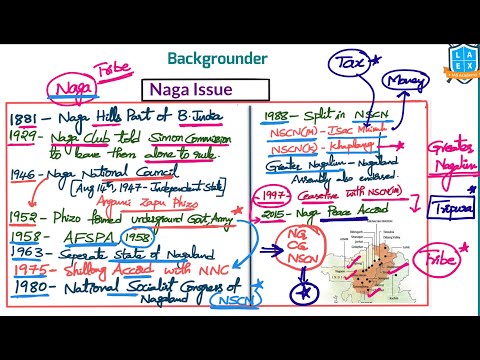 Backgrounder
Tribe
Naga
Naga Issue
Tax
Money
LAEX
1881 - Naga Hills Part of B. India
1929 - Naga Club told Simon Commission
to leave them alone to rule.
1946 - Naga National Council
[Aug 14th, 1947 - Independent State]
Angami Zapu Phizo
1952 - Phizo formed underground Govt, Army
1958 - AFSPA 1958
1963 - Seperate State of Nagaland
1975 - Shillong Accord with NNC
1980 - National Socialist Congress of
Nagaland NSCN
1988 - Split in NSCN
NSCN(IM) - Isac Muivah
NSCN(K) - Khaplang
Greater Nagalim - Nagaland
Assembly also endorsed.
1997 - Ceasefire with NSCN(IM)
2015 - Naga Peace Accord
NG
CG
NSCN
Greater
Nagalim
Tripura
Tribe